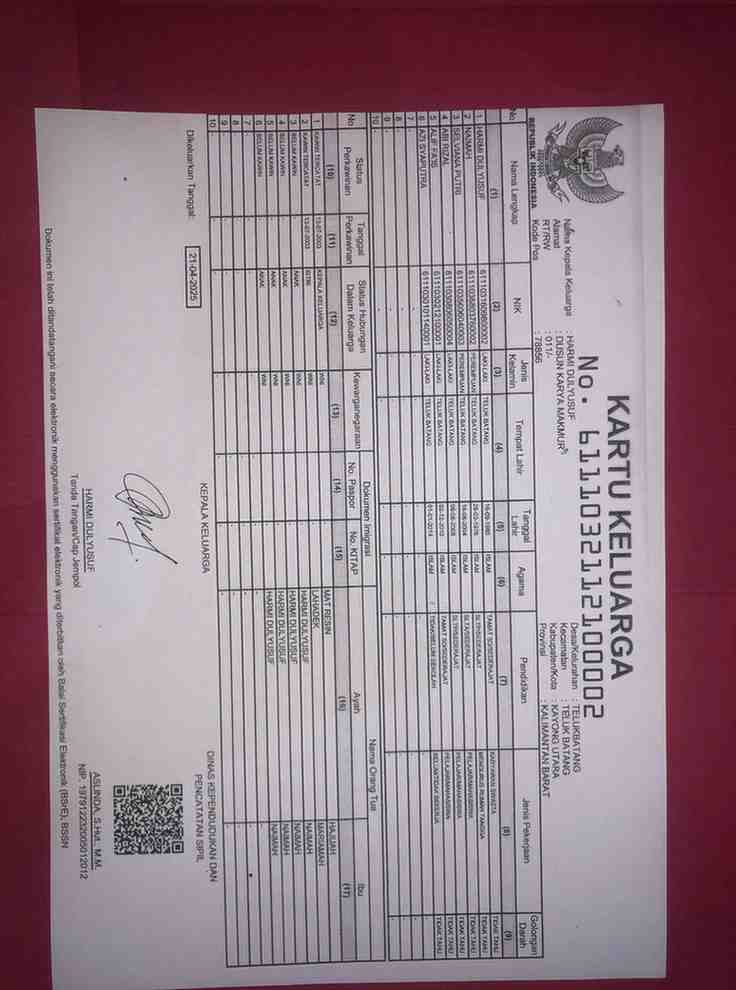 KARTU KELUARGA
No. 6111032112100002
REPUBLIK INDONESIA
Nama Kepala Keluarga : HARMI DULYUSUF
Alamat : DUSUN KARYA MAKMUR
RT/RW : 011/-
Kode Pos : 78856
Desa/Kelurahan : TELUKBATANG
Kecamatan : TELUK BATANG
Kabupaten/Kota : KAYONG UTARA
Provinsi : KALIMANTAN BARAT
No Nama Lengkap NIK Jenis Kelamin Tempat Lahir Tanggal Lahir Agama Pendidikan Jenis Pekerjaan Golongan Darah
(1) (2) (3) (4) (5) (6) (7) (8) (9)
1 HARMI DULYUSUF LAKI-LAKI TELUK BATANG ISLAM TAMAT SD/SEDERAJAT KARYAWAN SWASTA TIDAK TAHU
2 NAIMAH PEREMPUAN TELUK BATANG ISLAM SLTP/SEDERAJAT MENGURUS RUMAH TANGGA TIDAK TAHU
3 SELVIANA PUTRI PEREMPUAN TELUK BATANG ISLAM SLTA/SEDERAJAT PELAJAR/MAHASISWA TIDAK TAHU
4 ABI RIZAL LAKI-LAKI TELUK BATANG ISLAM SLTP/SEDERAJAT PELAJAR/MAHASISWA TIDAK TAHU
5 LAKI-LAKI TELUK BATANG ISLAM TAMAT SD/SEDERAJAT PELAJAR/MAHASISWA TIDAK TAHU
6 AZI SYAPUTRA 6111030101140001 LAKI-LAKI TELUK BATANG 01-01-2014 ISLAM TIDAK/BELUM SEKOLAH BELUM/TIDAK BEKERJA TIDAK TAHU
7 - - - - - - - - -
8 - - - - - - - - -
9 - - - - - - - - -
10 - - - - - - - - -
No Status Perkawinan Tanggal Perkawinan Status Hubungan Dalam Keluarga Kewarganegaraan Dokumen Imigrasi Nama Orang Tua
No. Paspor No. KITAP Ayah Ibu
(10) (11) (12) (13) (14) (15) (16) (17)
1 KAWIN TERCATAT 13-07-2003 KEPALA KELUARGA WNI - - MAT RESIN HAJIJAH
2 KAWIN TERCATAT 13-07-2003 ISTRI WNI - - LAHADEK MARSAMAH
3 BELUM KAWIN - ANAK WNI - - HARMI DULYUSUF NAIMAH
4 BELUM KAWIN - ANAK WNI - - HARMI DULYUSUF NAIMAH
5 BELUM KAWIN - ANAK WNI - - HARMI DULYUSUF NAIMAH
6 BELUM KAWIN - ANAK WNI - - HARMI DULYUSUF NAIMAH
7 - - - - - - - -
8 - - - - - - - -
9 - - - - - - - -
10 - - - - - - - -
Dikeluarkan Tanggal : 21-04-2025
KEPALA KELUARGA
HARMI DULYUSUF
Tanda Tangan/Cap Jempol
DINAS KEPENDUDUKAN DAN
PENCATATAN SIPIL
ASLINDA, S.Hut., M.M.
NIP. 197912232005012012
Dokumen ini telah ditandatangani secara elektronik menggunakan sertifikat elektronik yang diterbitkan oleh Balai Sertifikasi Elektronik (BSrE), BSSN